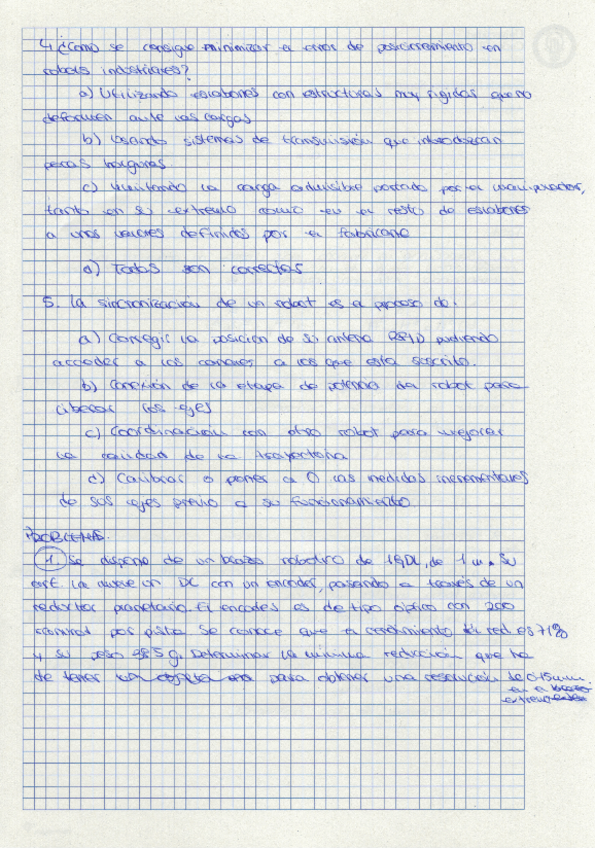 4. ¿Como se consigue minimizar el error de posicionamiento en
robots industriales?
a) Utilizando eslabones con estructuras muy rígidas que no
deformen ante las cargas
b) Usando sistemas de transmisión que introduzcan
pocas holguras.
c) Limitando la carga admisible portado por el manipulador,
tanto en su extremo como en el resto de eslabones
a unos valores definidos por el fabricante
d) Todas son correctas
5. La sincronizacion de un robot es el proceso de:
a) Corregir la posicion de su antena pudiendo
acceder a los canales a los que esta suscrito.
b) Conexión de la etapa de potencia del robot para
liberar los ejes
c) Coordinacion con otro robot para mejorar
la calidad de la trayectoria
d) Calibrar o poner a 0 las medidas incrementales
de sos ejes previo a su funcionamiento
PROBLEMAS.
1 Se dispone de un brazo robotico de 1GDL, de 1 m. Su
La mueve un DC con un encoder, pasando a través de un
reductor planetario. El encoder es de tipo optico con 200
por pista. Se conoce que el rendimiento red. es 71%
y su peso 985 g. Determinar la minima reducción que ha
de tener para obtener una resolución de 0'15mm.
en el
extremo